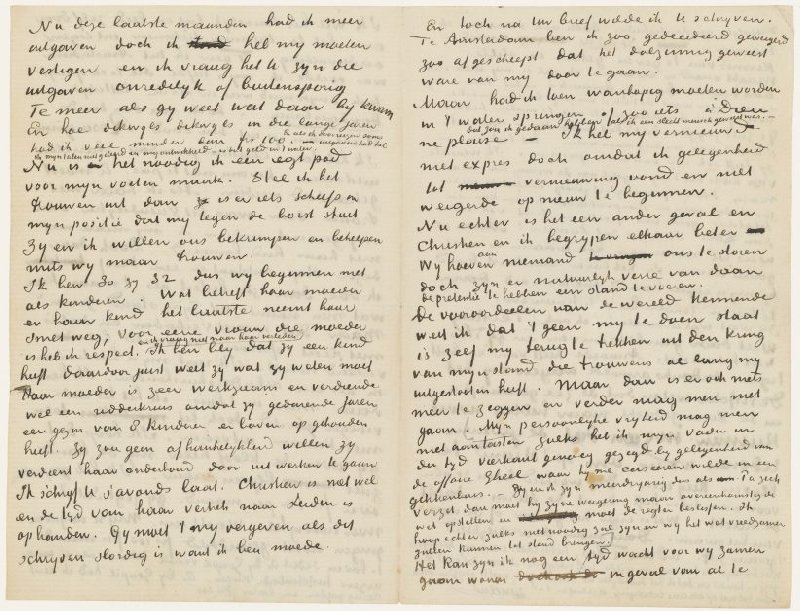 Nu deze laatste maanden had ik meer
uitgaven doch ik het my moeten
vestigen en ik vraag het U zyn die
uitgaven onredelyk of buitensporig
Te meer als gy weet wat daar by kwam
En hoe dikwyls dikwyls in die lange jaren
had ik veel minder dan fr 100.
Nu is het noodig ik een regt pad
voor myn voeten maak. Stel ik het
trouwen uit dan is er iets scheefs in
myn positie dat my tegen de borst stuit
Zy en ik willen ons bekrimpen en behelpen
mits wy maar trouwen
Ik ben 30 zy 32 dus wy beginnen niet
als kinderen. Wat betreft haar moeder
en haar kind het laatste neemt haar
smet weg, voor eene vrouw die moeder
en ik vraag niet naar haar verleden
is heb ik respect. Ik ben bly dat zy een kind
heeft daardoor juist weet zy wat zy weten moet
Haar moeder is zeer werkzaam en verdiende
wel een ridderkruis omdat zy gedurende jaren
een gezin van 8 kinderen er boven op gehouden
heeft. Zy zou geen afhankelykheid willen zy
verdient haar onderhoud door uit werken te gaan
Ik schryf U s'avonds laat. Christien is niet wel
en de tyd van haar vertrek naar Leiden is
ophanden. Gy moet my vergeven als dit
schryven slordig is want ik ben moede.
En toch na Uw brief wilde ik U schryven.
Te Amsterdam ben ik zoo gedecideerd geweigerd
zoo afgescheept dat het dolzinnig geweest
ware van my door te gaan.
Maar had ik toen wanhopig moeten worden
in 't water springen of zoo iets à Dieu
dat zou ik gedaan hebben als ik een slecht mensch geweest was. –
ne plaise – Ik heb my vernieuwd
niet expres doch omdat ik gelegenheid
tot vernieuwing vond en niet
weigerde opnieuw te beginnen.
Nu echter is het een ander geval en
Christien en ik begrypen elkaar beter
Wy hoeven aan niemand ons te storen
doch zyn er natuurlyk verre van daan
de pretentie te hebben een stand te voeren.
De vooroordeelen van de wereld kennende
weet ik dat 't geen my te doen staat
is zelf my terug te trekken uit den kring
van myn stand die trouwens al lang my
uitgestooten heeft. Maar dan is er ook niets
meer te zeggen en verder mag men niet
gaan. Myn persoonlyke vryheid mag men
niet aantasten zulks heb ik myn vader in
der tyd vierkant genoeg gezegd by gelegenheid van
de affaire Gheel waar hy me wilde in een
gekkenhuis. Gy en ik zyn meerderjarig dus als Pa zich
verzet dan moet hy zyne weigering maar overeenkomstig de
wet opstellen en moet de regter beslissen. Ik
hoop echter zulks niet noodig zal zyn en wy het wat vreedzamer
zullen kunnen tot stand brengen.
Het kan zyn ik nog een tyd wacht voor wy zamen
gaan wonen in geval van al te